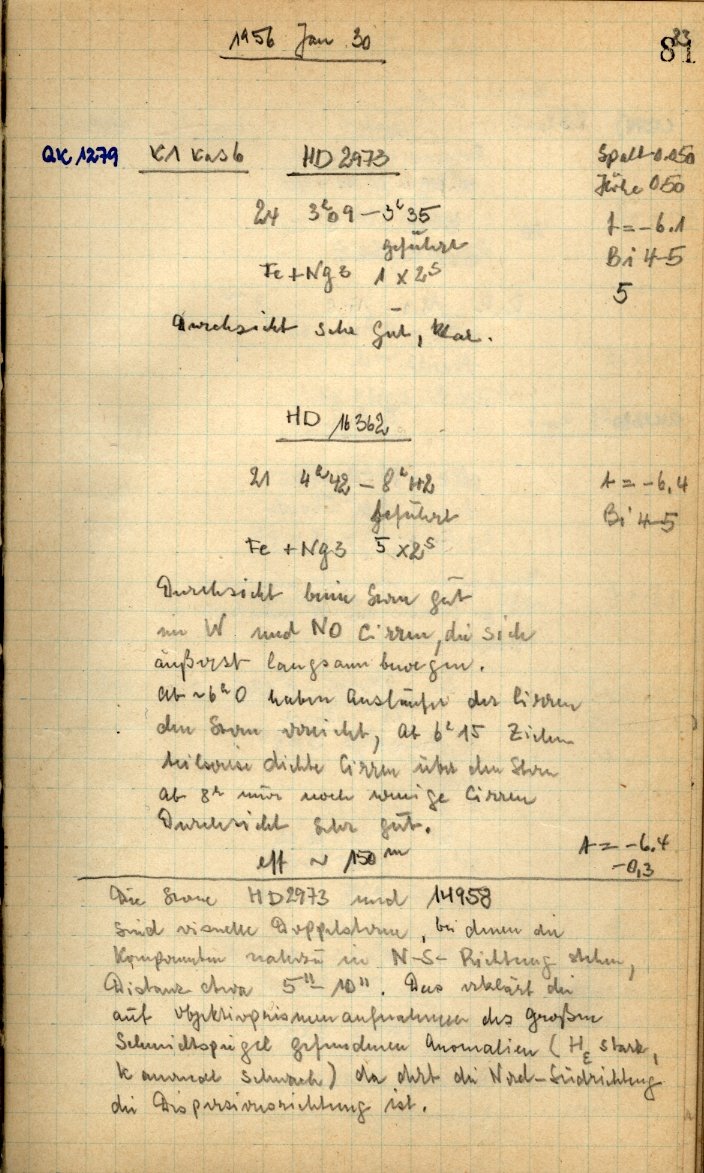 1956 Jan 30
81
23
QK 1279 K1 Kas b HD 2973 Spalt 0.050
Höhe 0.50
24 3h09 – 3h35 t = –6.1
geführt Bi 4-5
Fe + Ng3 1 x 2s 5
Durchsicht sehr gut, klar.
HD 16362
21 4h42 – 8h42 t = –6,4
geführt Bi 4-5
Fe + Ng3 5 x 2s
Durchsicht beim Stern gut
im W und NO Cirren, die sich
äußerst langsam bewegen.
ab ~6h0 haben Ausläufer der Cirren
den Stern erreicht, ab 6h15 ziehen
teilweise dichte Cirren über den Stern
ab 8h nur noch wenige Cirren
Durchsicht sehr gut.
eff ~ 150m t = –6.4
–0,3
Die Sterne HD2973 und 14958
sind visuelle Doppelsterne, bei denen die
Komponenten nahezu in N-S-Richtung stehen,
Distanz etwa 5"– 10". Das erklärt die
auf Objektivprismenaufnahmen des großen
Schmidtspiegel gefundenen Anomalien (Hε stark,
K anomal schwach) da dort die Nord-Südrichtung
die Dispersionsrichtung ist.